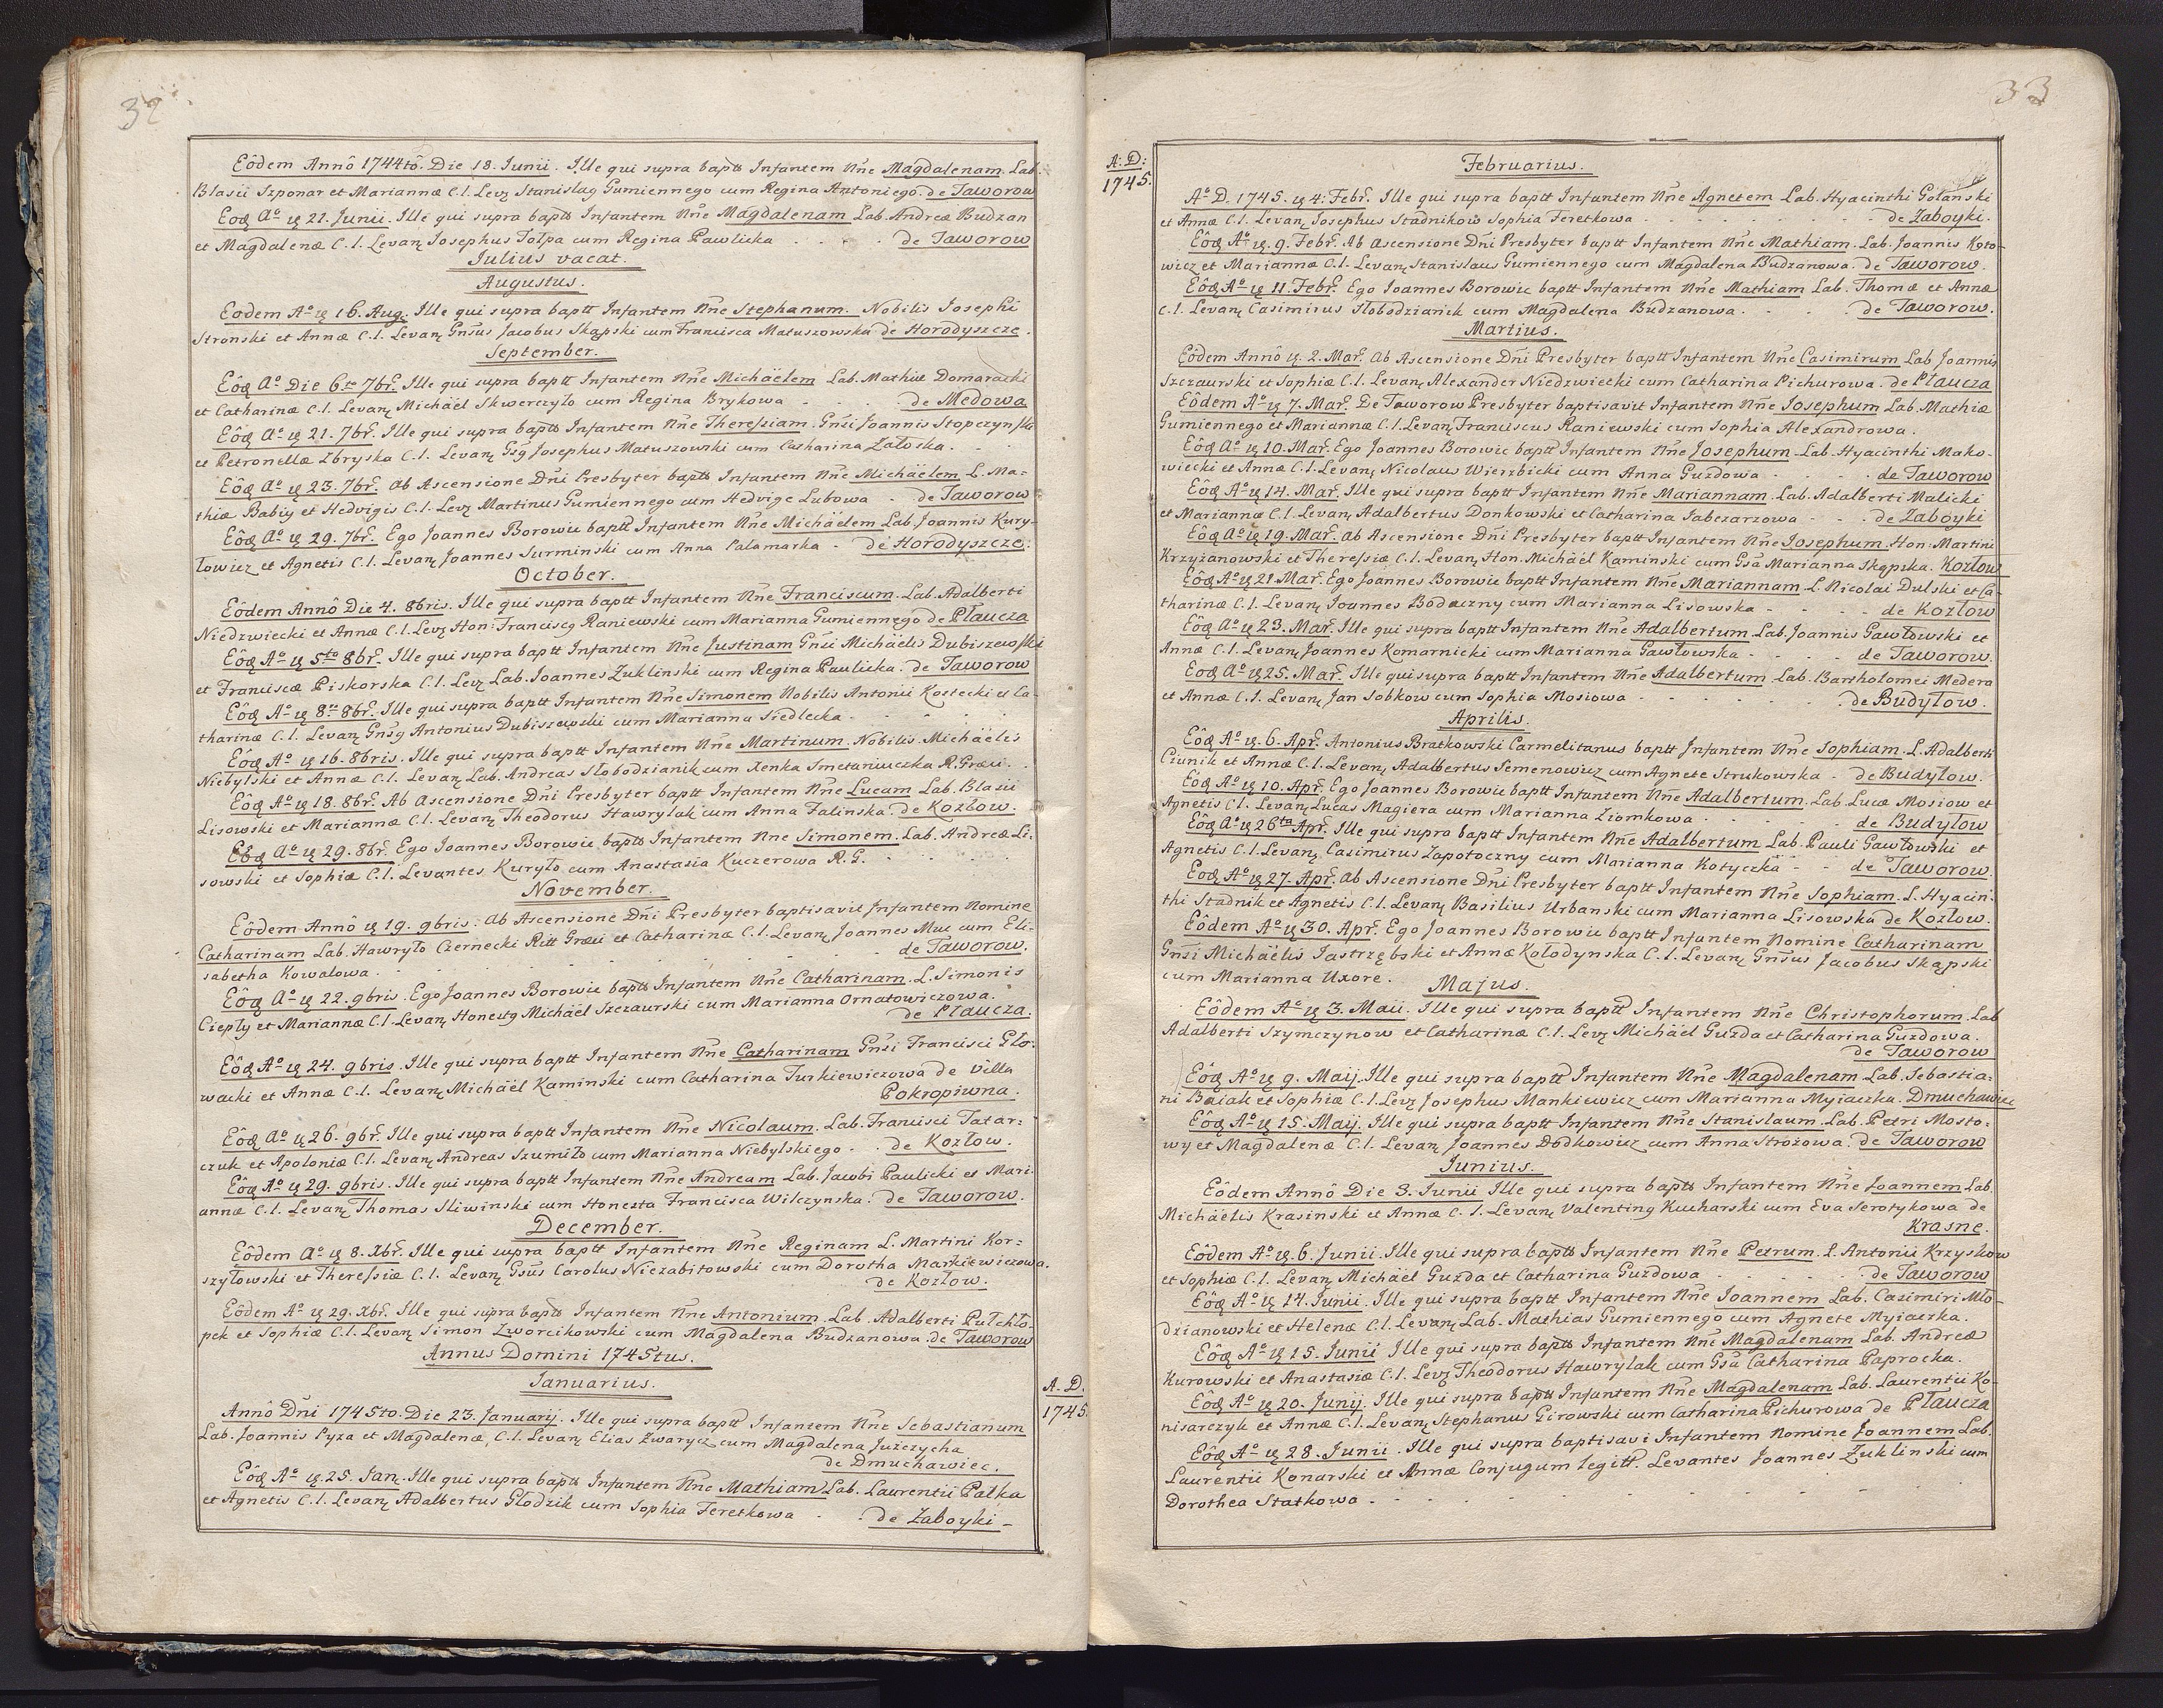 32
Eôdem Annô 1744tô. Die 18. Junii. Ille qui supra baptt Infantem Nñe Magdalenam Lab.
Blasii Szponar et Mariannæ C.l. Levꝫ Stanislaꝯ Gumiennego cum Regina Antoniego. de Taworow
Eoꝺ Aº ꝺ 21. Junii. Ille qui supra baptt Infantem Nñe Magdalenam Lab. Andreæ Budzan
et Magdalenæ C.l. Levanꝫ Josephus Tołpa cum Regina Pawlicka . . . . de Taworow
Julius vacat.
Augustus.
Eodem Aº ꝺ 16. Aug. Ille qui supra baptt Infantem Nñe Stephanum. Nobilis Josephi
Stronski et Annæ C.l. Levanꝫ Gnŝus Jacobus Skąpski cum Francisca Matuszowska de Horodyszcze.
September.
Eôꝺ Aº Die 6to 7bř. Ille qui supra baptt Infantem Nñe Michäelem Lab. Mathiæ Domaracki
et Catharinæ C.l. Levanꝫ Michäel Skwerczyło cum Regina Brykowa . . . de Medowa
Eôꝺ Aº ꝺ 21. 7bř. Ille qui supra baptt Infantem Nñe Theressiam. Gnŝi Joannis Stopczynski
et Petronellæ Zbryska C.l. Levanꝫ Gŝꝯ Josephus Matuszowski cum Catharina Załoska.
Eôꝺ Aº ꝺ 23. 7bř. Ab Ascensione Dñi Presbyter baptt Infantem Nñe Michäelem L. Ma-
thiæ Babiy et Hedvigis C.l. Levꝫ Martinus Gumiennego cum Hedvige Lubowa - de Taworow
Eôꝺ Aº ꝺ 29. 7bř. Ego Joannes Borowic baptt Infantem Nñe Michäelem Lab. Joannis Kury-
łowicz et Agnetis C.l. Levanꝫ Joannes Surminski cum Anna Całamarka - de Horodyszcze.
October.
Eôdem Annô Die 4. 8bris. Ille qui supra baptt Infantem Nñe Franciscum. Lab. Adalberti
Niedzwiecki et Annæ C.l. Levꝫ Hon: Franciscꝯ Raniewski cum Marianna Gumiennego de Płaucza
Eôꝺ Aº ꝺ 5to 8bř. Ille qui supra baptt Infantem Nñe Justinam Gnŝi Michäelis Dubiszewski
et Franciscæ Piskorska C.l. Levꝫ Lab. Joannes Zuklinski cum Regina Paulicka. de Taworow
Eôꝺ Aº ꝺ 8va 8bř. Ille qui supra baptt Infantem Nñe Simonem Nobilis Antonii Kostecki et Ca-
tharinæ C.l. Levanꝫ Gnŝꝯ Antonius Dubiszewski cum Marianna Siedlecka.
Eôꝺ Aº ꝺ 16. 8bris. Ille qui supra baptt Infantem Nñe Martinum. Nobilis. Michäelis
Niebylski et Annæ C.l. Levanꝫ Lab. Andreas Słobodzianik cum Xenka Smetaniuczka R. Græci.
Eôꝺ Aº ꝺ 18. 8bř. Ab Ascensione Dñi Presbyter baptt Infantem Nñe Lucam Lab. Blasii
Lisowski et Mariannæ C.l. Levanꝫ Theodorus Hawrylak cum Anna Falinska. de Kozłow.
Eôꝺ Aº ꝺ 29. 8bř. Ego Joannes Borowic baptt Infantem Nñe Simonem. Lab. Andreæ Li-
sowski et Sophiæ C.l. Levantes Kuryło cum Anastasia Kuczerowa R. G.
November.
Eôdem Annô ꝺ 19. 9bris. Ab Ascensione Dñi Presbyter baptisavit Infantem Nomine
Catharinam Lab. Hawryło Czernecki Ritt Græci et Catharinæ C.l. Levanꝫ Joannes Muc cum Eli-
sabetha Kowalowa. de Taworow.
Eôꝺ Aº ꝺ 22. 9bris. Ego Joannes Borowic baptt Infantem Nñe Catharinam. L. Simonis
Ciepły et Mariannæ C.l. Levanꝫ Honestꝯ Michäel Szczaurski cum Marianna Ornatowiczowa.
de Płaucza.
Eôꝺ Aº ꝺ 24. 9bris. Ille qui supra baptt Infantem Nñe Catharinam Gnŝi Francisci Gło-
wacki et Annæ C.l. Levanꝫ Michäel Kaminski cum Catharina Turkiewiczowa de Villa
Pokropiwna.
Eôꝺ Aº ꝺ 26. 9bř. Ille qui supra baptt Infantem Nñe Nicolaum. Lab. Francisci Tatar-
czuk et Apoloniæ C.l. Levanꝫ Andreas Szumiło cum Marianna Niebylskiego - . de Kozłow.
Eôꝺ Aº ꝺ 29. 9bris. Ille qui supra baptt Infantem Nñe Andream Lab. Jacobi Paulicki et Mari-
annæ C.l. Levanꝫ Thomas Sliwinski cum Honesta Francisca Wilczynska. de Taworow.
December.
Eôdem Aº ꝺ 8. Xbř. Ille qui supra baptt Infantem Nñe Reginam L. Martini Kor-
szyłowski et Theressiæ C.l. Levanꝫ Gŝus Carolus Niezabitowski cum Dorotha Markiewiczowa.
de Kozłow.
Eôdem Aº ꝺ 29. Xbř. Ille qui supra baptt Infantem Nñe Antonium. Lab. Adalberti Pułchło-
pek et Sophiæ C.l. Levanꝫ Simon Zworcikowski cum Magdalena Budzanowa. de Taworow
Annus Domini 1745tus.
Januarius.
A. D.
1745.
Annô Dñi 1745to. Die 23. Januarij. Ille qui supra baptt Infantem Nñe Sebastianum
Lab. Joannis Pyza et Magdalenæ, C.l. Levanꝫ Elias Zwarycz cum Magdalena Juzczycha
de Dmuchawiec.
Eôꝺ Aº ꝺ 25. Janꝫ. Ille qui supra baptt Infantem Nñe Mathiam Lab. Laurentii Pałka
et Agnetis C.l. Levanꝫ Adalbertus Głodzik cum Sophia Feretkowa . . de Zaboyki -
33
A: D:
1745.
Februarius.
Aº D. 1745. ꝺ 4. Febř. Ille qui supra baptt Infantem Nñe Agnetem Lab. Hyacinthi Golanski
et Annæ C.l. Levanꝫ Josephus Stadnikow Sophia Feretkowa . . . de Zaboyki.
Eôꝺ Aº ꝺ 9. Febř. Ab Ascensione Dñi Presbyter baptt Infantem Nñe Mathiam. Lab. Joannis Koto-
wicz et Mariannæ C.l. Levanꝫ Stanislaus Gumiennego cum Magdalena Budzanowa. de Taworow.
Eôꝺ Aº ꝺ 11. Febř. Ego Joannes Borowic baptt Infantem Nñe Mathiam Lab. Thomæ et Annæ
C.l. Levanꝫ Casimirus Słobodzianik cum Magdalena Budzanowa. . . . de Taworow.
Martius.
Eôdem Annô ꝺ 2. Mař. Ab Ascensione Dñi Presbyter baptt Infantem Nñe Casimirum Lab Joannis
Szczaurski et Sophiæ C.l. Levanꝫ Alexander Niedzwiecki cum Catharina Pichurowa. de Płaucza
Eôdem Aº ꝺ 7. Mař. De Taworow Presbyter baptisavit Infantem Nñe Josephum Lab. Mathiæ
Gumiennego et Mariannæ C.l. Levanꝫ Franciscus Raniewski cum Sophia Alexandrowa.
Eôꝺ Aº ꝺ 10. Mař. Ego Joannes Borowic baptt Infantem Nñe Josephum. Lab. Hyacinthi Mako-
wiecki et Annæ C.l. Levanꝫ Nicolaus Wierzbicki cum Anna Guzdowa - . . . de Taworow
Eôꝺ Aº ꝺ 14. Mař. Ille qui supra baptt Infantem Nñe Mariannam. Lab. Adalberti Malicki
et Mariannæ C.l. Levanꝫ Adalbertus Donkowski et Catharina Jabczarzowa - . . de Zaboyki
Eôꝺ Aº ꝺ 19. Mař. Ab Ascensione Dñi Presbyter baptt Infantem Nñe Josephum. Hon: Martini
Krzyżanowski et Theressiæ C.l. Levanꝫ Hon. Michäel Kaminski cum Gŝa Marianna Skąpska. Kozłow
Eôꝺ Aº ꝺ 21 Mař. Ego Joannes Borowic baptt Infantem Nñe Mariannam. L. Nicolai Dulski et Ca-
tharinæ C.l. Levanꝫ Joannes Bodaczny cum Marianna Lisowska - - - - de Kozłow
Eôꝺ Aº ꝺ 23. Mař. Ille qui supra baptt Infantem Nñe Adalbertum. Lab. Joannis Gawłowski et
Annæ C.l. Levanꝫ Joannes Komarnicki cum Marianna Gawłowska - . . . de Taworow.
Eoꝺ Aº ꝺ 25. Mař. Ille qui supra baptt Infantem Nñe Adalbertum. Lab. Bartholomei Medera
et Annæ C.l. Levanꝫ Jan Sobkow cum Sophia Mosiowa - . . . . de Budyłow.
Aprilis.
Eôꝺ Aº ꝺ 6. Apř. Antonius Bratkowski Carmelitanus baptt Infantem Nñe Sophiam. L. Adalberti
Ciunik et Annæ C.l. Levanꝫ Adalbertus Semenowicz cum Agnete Strukowska - de Budyłow.
Eôꝺ Aº ꝺ 10. Apř. Ego Joannes Borowic baptt Infantem Nñe Adalbertum. Lab. Lucæ Mosiow et
Agnetis C.l. Levanꝫ Lucas Magiera cum Marianna Ziomkowa . . . . de Budyłow
Eôꝺ Aº ꝺ 26ta Apř. Ille qui supra baptt Infantem Nñe Adalbertum Lab. Pauli Gawłowski et
Agnetis C.l. Levanꝫ Casimirus Zapotoczny cum Marianna Kotyczka - - de Taworow.
Eoꝺ Aº ꝺ 27. Apř. Ab Ascensione Dñi Presbyter baptt Infantem Nñe Sophiam. L. Hyacin-
thi Stadnik et Agnetis C.l. Levanꝫ Basilius Urbanski cum Marianna Lisowska de Kozłow.
Eôdem Aº ꝺ 30. Apř. Ego Joannes Borowic baptt Infantem Nomine Catharinam
Gnŝi Michäelis Jastrzębski et Annæ Kołodynska C.l. Levanꝫ Gnŝus Jacobus Skąpski
cum Marianna Uxore.
Majus.
Eôdem Aº ꝺ 3. Maii. Ille qui supra baptt Infantem Nñe Christophorum. Lab
Adalberti Szymczynow et Catharinæ C.l. Levꝫ Michäel Guzda et Catharina Guzdowa.
de Taworow
Eôꝺ Aº ꝺ 9. Maij. Ille qui supra baptt Infantem Nñe Magdalenam. Lab. Sebastia-
ni Baiak et Sophiæ C.l. Levꝫ Josephus Mankiewicz cum Marianna Myiaczka. Dmuchawiec
Eôꝺ Aº ꝺ 15. Maij. Ille qui supra baptt Infantem Nñe Stanislaum. Lab. Petri Mosto-
wy et Magdalenæ C.l. Levanꝫ Joannes Dodkowicz cum Anna Strozowa. de Taworow
Junius.
Eôdem Annô Die 3. Junii Ille qui supra baptt Infantem Nñe Joannem Lab.
Michäelis Krasinski et Annæ C.l. Levanꝫ Valentinꝯ Kucharski cum Eva Serotykowa de
Krasne.
Eôdem Aº ꝺ 6. Junii. Ille qui supra baptt Infantem Nñe Petrum. L. Antonii Krzyskow
et Sophiæ C.l. Levanꝫ Michäel Guzda et Catharina Guzdowa . . . . de Taworow
Eôꝺ Aº ꝺ 14. Junii. Ille qui supra baptt Infantem Nñe Joannem Lab. Casimiri Mło-
dzianowski et Helenæ C.l. Levanꝫ Lab. Mathias Gumiennego cum Agnete Myiaczka.
Eôꝺ Aº ꝺ 15. Junii Ille qui supra baptt Infantem Nñe Magdalenam Lab. Andreæ
Kurowski et Anastasiæ C.l. Levꝫ Theodorus Hawrylak cum Gŝa Catharina Paprocka.
Eôꝺ Aº ꝺ 20. Junij. Ille qui supra baptt Infantem Nñe Magdalenam Lab. Laurentii Ko-
nisarczyk et Annæ C.l. Levanꝫ Stephanus Girowski cum Catharina Pichurowa de Płaucza
Eôꝺ Aº ꝺ 28. Junii. Ille qui supra baptisavi Infantem Nomine Joannem Lab.
Laurentii Konarski et Annæ Conjugum legitt. Levantes Joannes Zuklinski cum
Dorothea Statkowa.